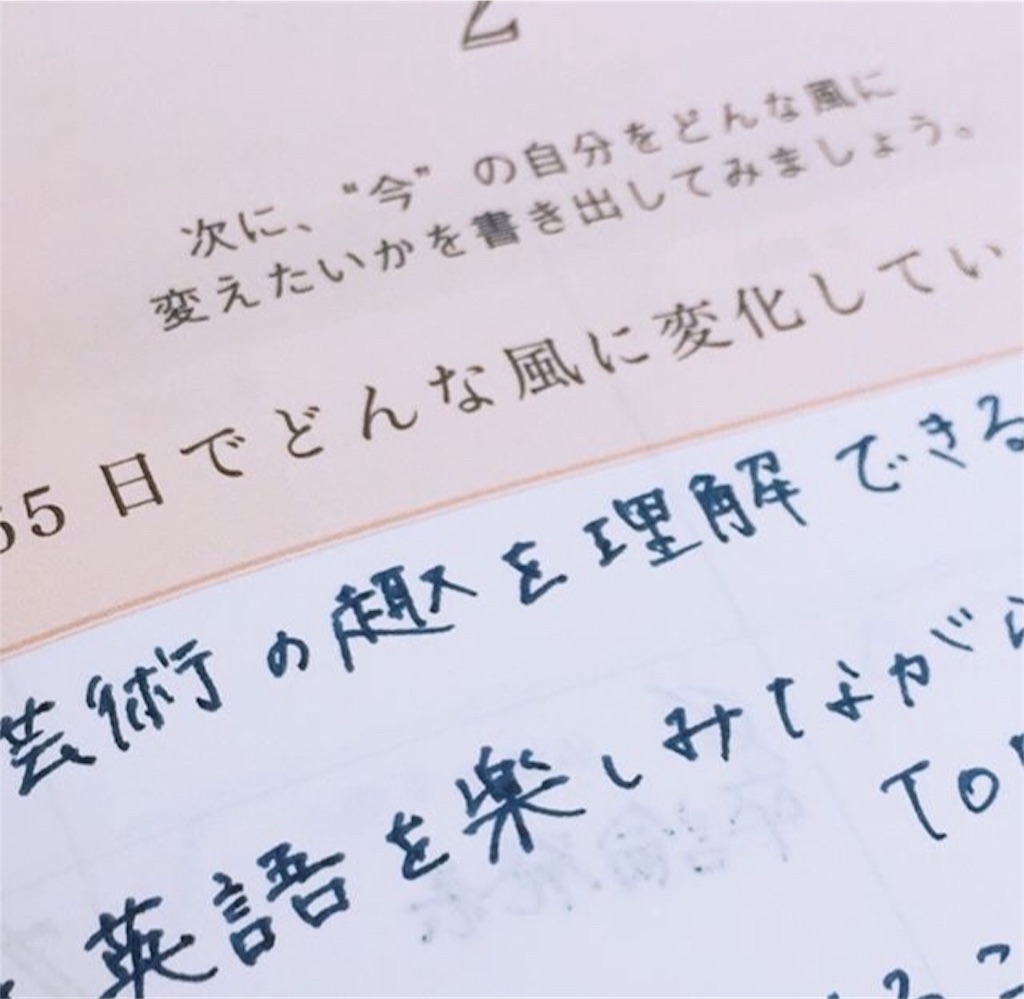 2
次に、“今”の自分をどんな風に
変えたいかを書き出してみましょう。
65日でどんな風に変化してい
芸術の趣を理解できる
英語を楽しみながら
TO